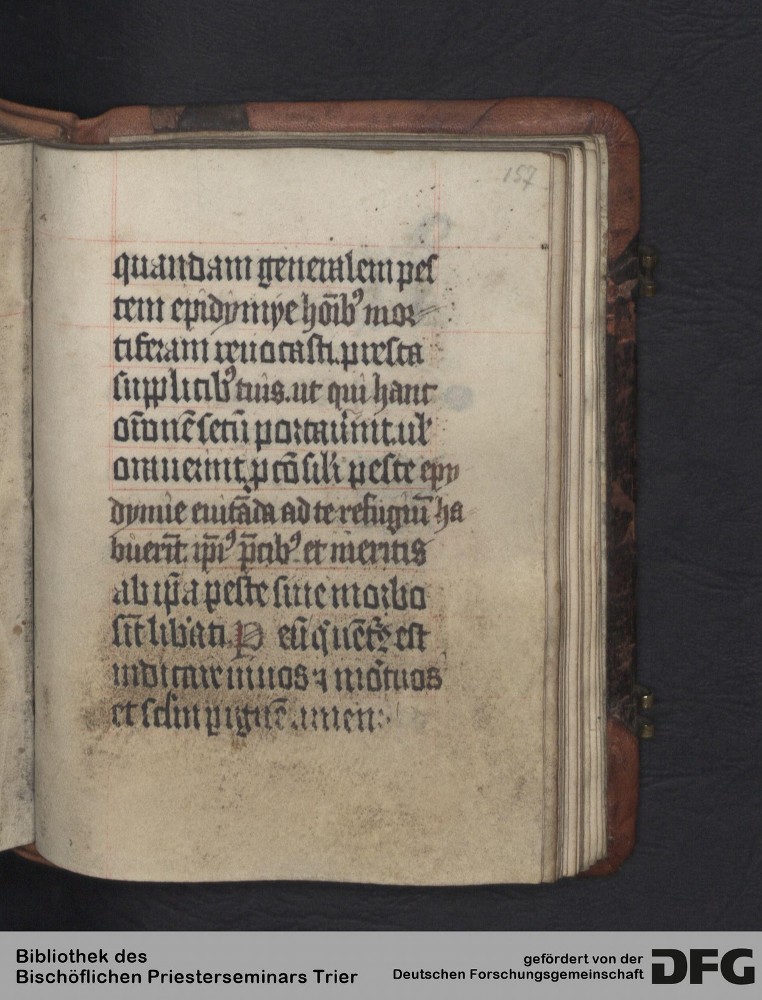 157
quandam generalem pes
tem epidymye hōibꝰ mor
tiferam reuocasti. presta
supplicibꝰ tuis. ut qui hanc
oīonē secū portauīnt. ul'
orauerint. p cōsili peste epy
dymie euitāda ad te refugiū ha
buerīt. ipīꝰ p̄cibꝰ et meritis
ab ip̄a peste sine morbo
sīt libati. P eū q uētꝰ est
iudicare uiuos ⁊ mōtuos
et sclm p ignē. amen:
Bibliothek des
Bischöflichen Priesterseminars Trier
gefördert von der
Deutschen Forschungsgemeinschaft
DFG